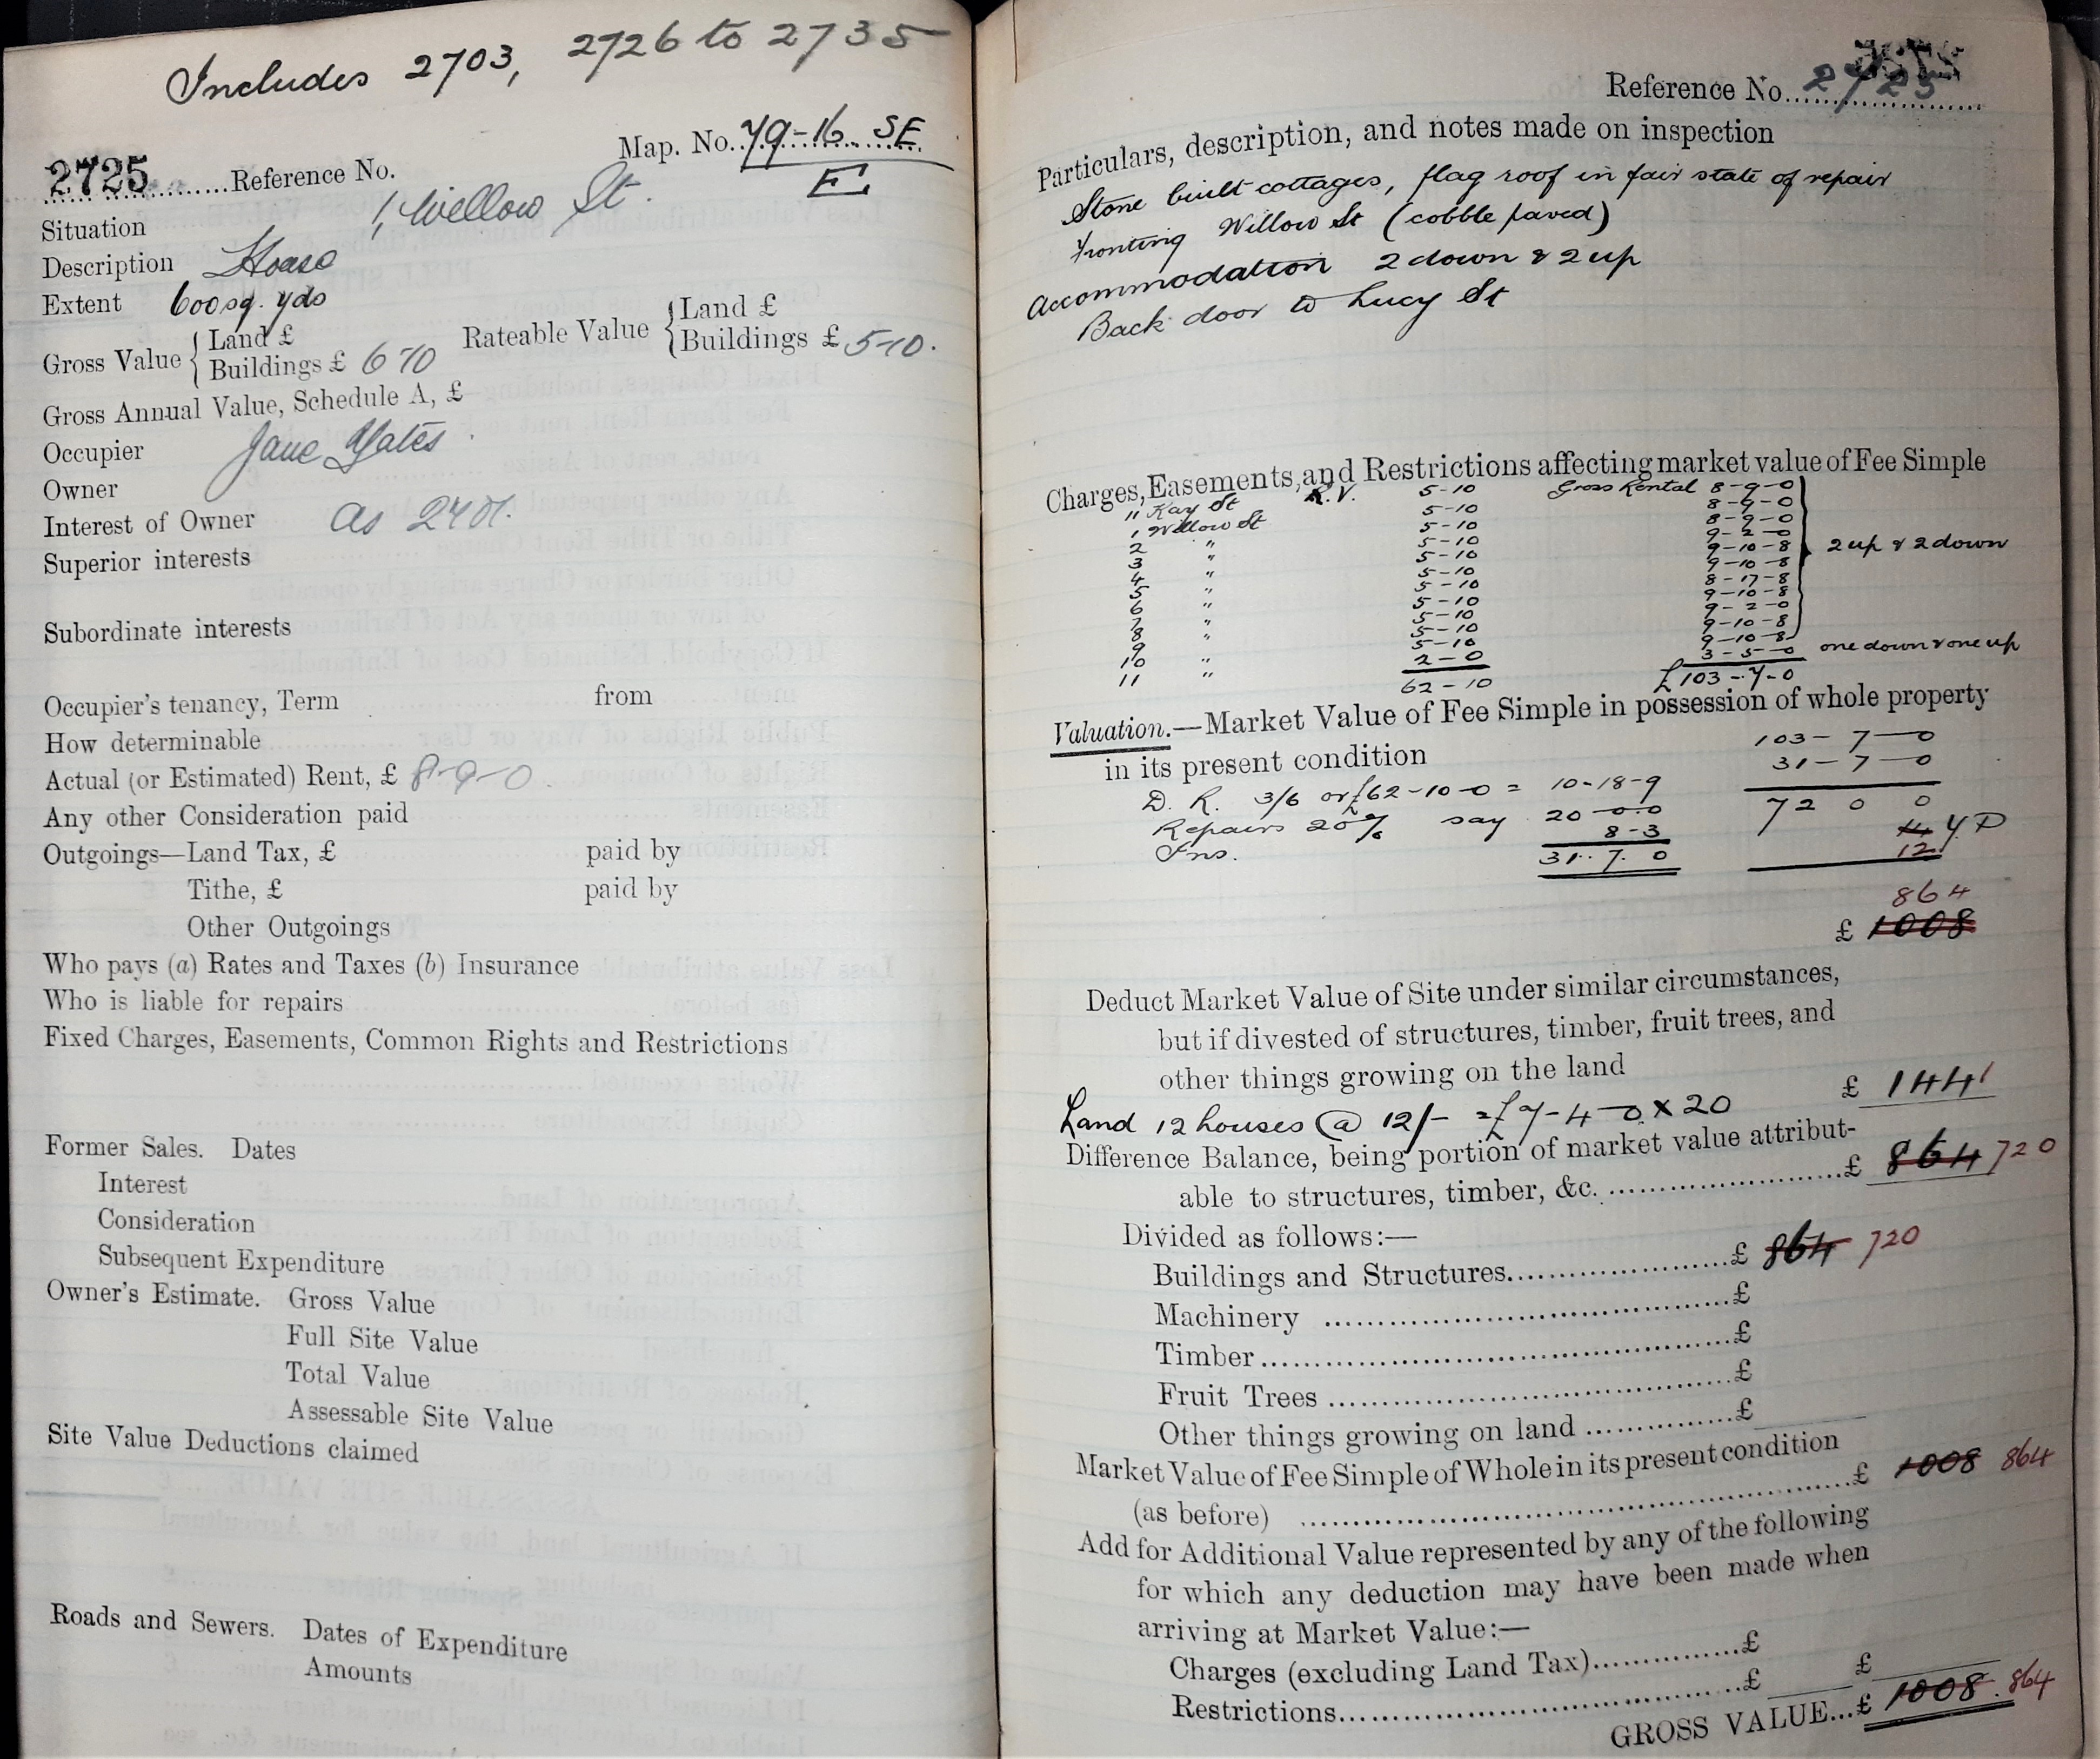 Includes 2703, 2726 to 2735
Map. No. 79-16 SE
E
2725 Reference No.
Situation 1, Willow St.
Description House
Extent 600 sq. yds
Gross Value { Land £
Buildings £ 6 10
Rateable Value { Land £
Buildings £ 5-10.
Gross Annual Value, Schedule A, £
Occupier Jane Yates
Owner
Interest of Owner as 2401.
Superior interests
Subordinate interests
Occupier's tenancy, Term from
How determinable
Actual (or Estimated) Rent, £ 8-9-0.
Any other Consideration paid
Outgoings—Land Tax, £ paid by
Tithe, £ paid by
Other Outgoings
Who pays (a) Rates and Taxes (b) Insurance
Who is liable for repairs
Fixed Charges, Easements, Common Rights and Restrictions
Former Sales. Dates
Interest
Consideration
Subsequent Expenditure
Owner's Estimate. Gross Value
Full Site Value
Total Value
Assessable Site Value
Site Value Deductions claimed
Roads and Sewers. Dates of Expenditure
Amounts
Reference No. 2725
Particulars, description, and notes made on inspection
Stone built cottages, flag roof in fair state of repair
Fronting Willow St (cobble paved)
Accommodation 2 down & 2 up
Back door to Lucy St
Charges, Easements, and Restrictions affecting market value of Fee Simple
11 Kay St R.V. 5-10 Gross Rental 8-9-0
1 Willow St 5-10 8-9-0
2 " 5-10 8-9-0
3 " 5-10 9-2-0
4 " 5-10 9-10-8 2 up & 2 down
5 " 5-10 9-10-8
6 " 5-10 8-17-8
7 " 5-10 9-10-8
8 " 5-10 9-2-0
9 " 5-10 9-10-8
10 " 5-10 9-10-8
11 " 2-0 3-5-0 one down & one up
62-10 £103-7-0
Valuation.—Market Value of Fee Simple in possession of whole property
in its present condition
103-7-0
31-7-0
D. R. 3/6 or £62-10-0 = 10-18-9
72 0 0
Repairs 20% say 20-0-0
14 Y.P
Ins. 8-3
12
31. 7. 0
864
£ 1008
Deduct Market Value of Site under similar circumstances,
but if divested of structures, timber, fruit trees, and
other things growing on the land
£ 144
Land 12 houses @ 12/- = £7-4-0 x 20
Difference Balance, being portion of market value attribut-
able to structures, timber, &c. £ 864 720
Divided as follows:—
Buildings and Structures £ 864 720
Machinery £
Timber £
Fruit Trees £
Other things growing on land £
Market Value of Fee Simple of Whole in its present condition
(as before) £ 1008 864
Add for Additional Value represented by any of the following
for which any deduction may have been made when
arriving at Market Value:—
Charges (excluding Land Tax) £
Restrictions £ £
GROSS VALUE...£ 1008. 864